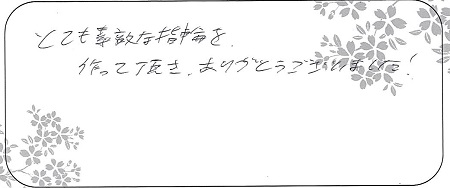 とても素敵な指輪を、
作って頂き、ありがとうございました!